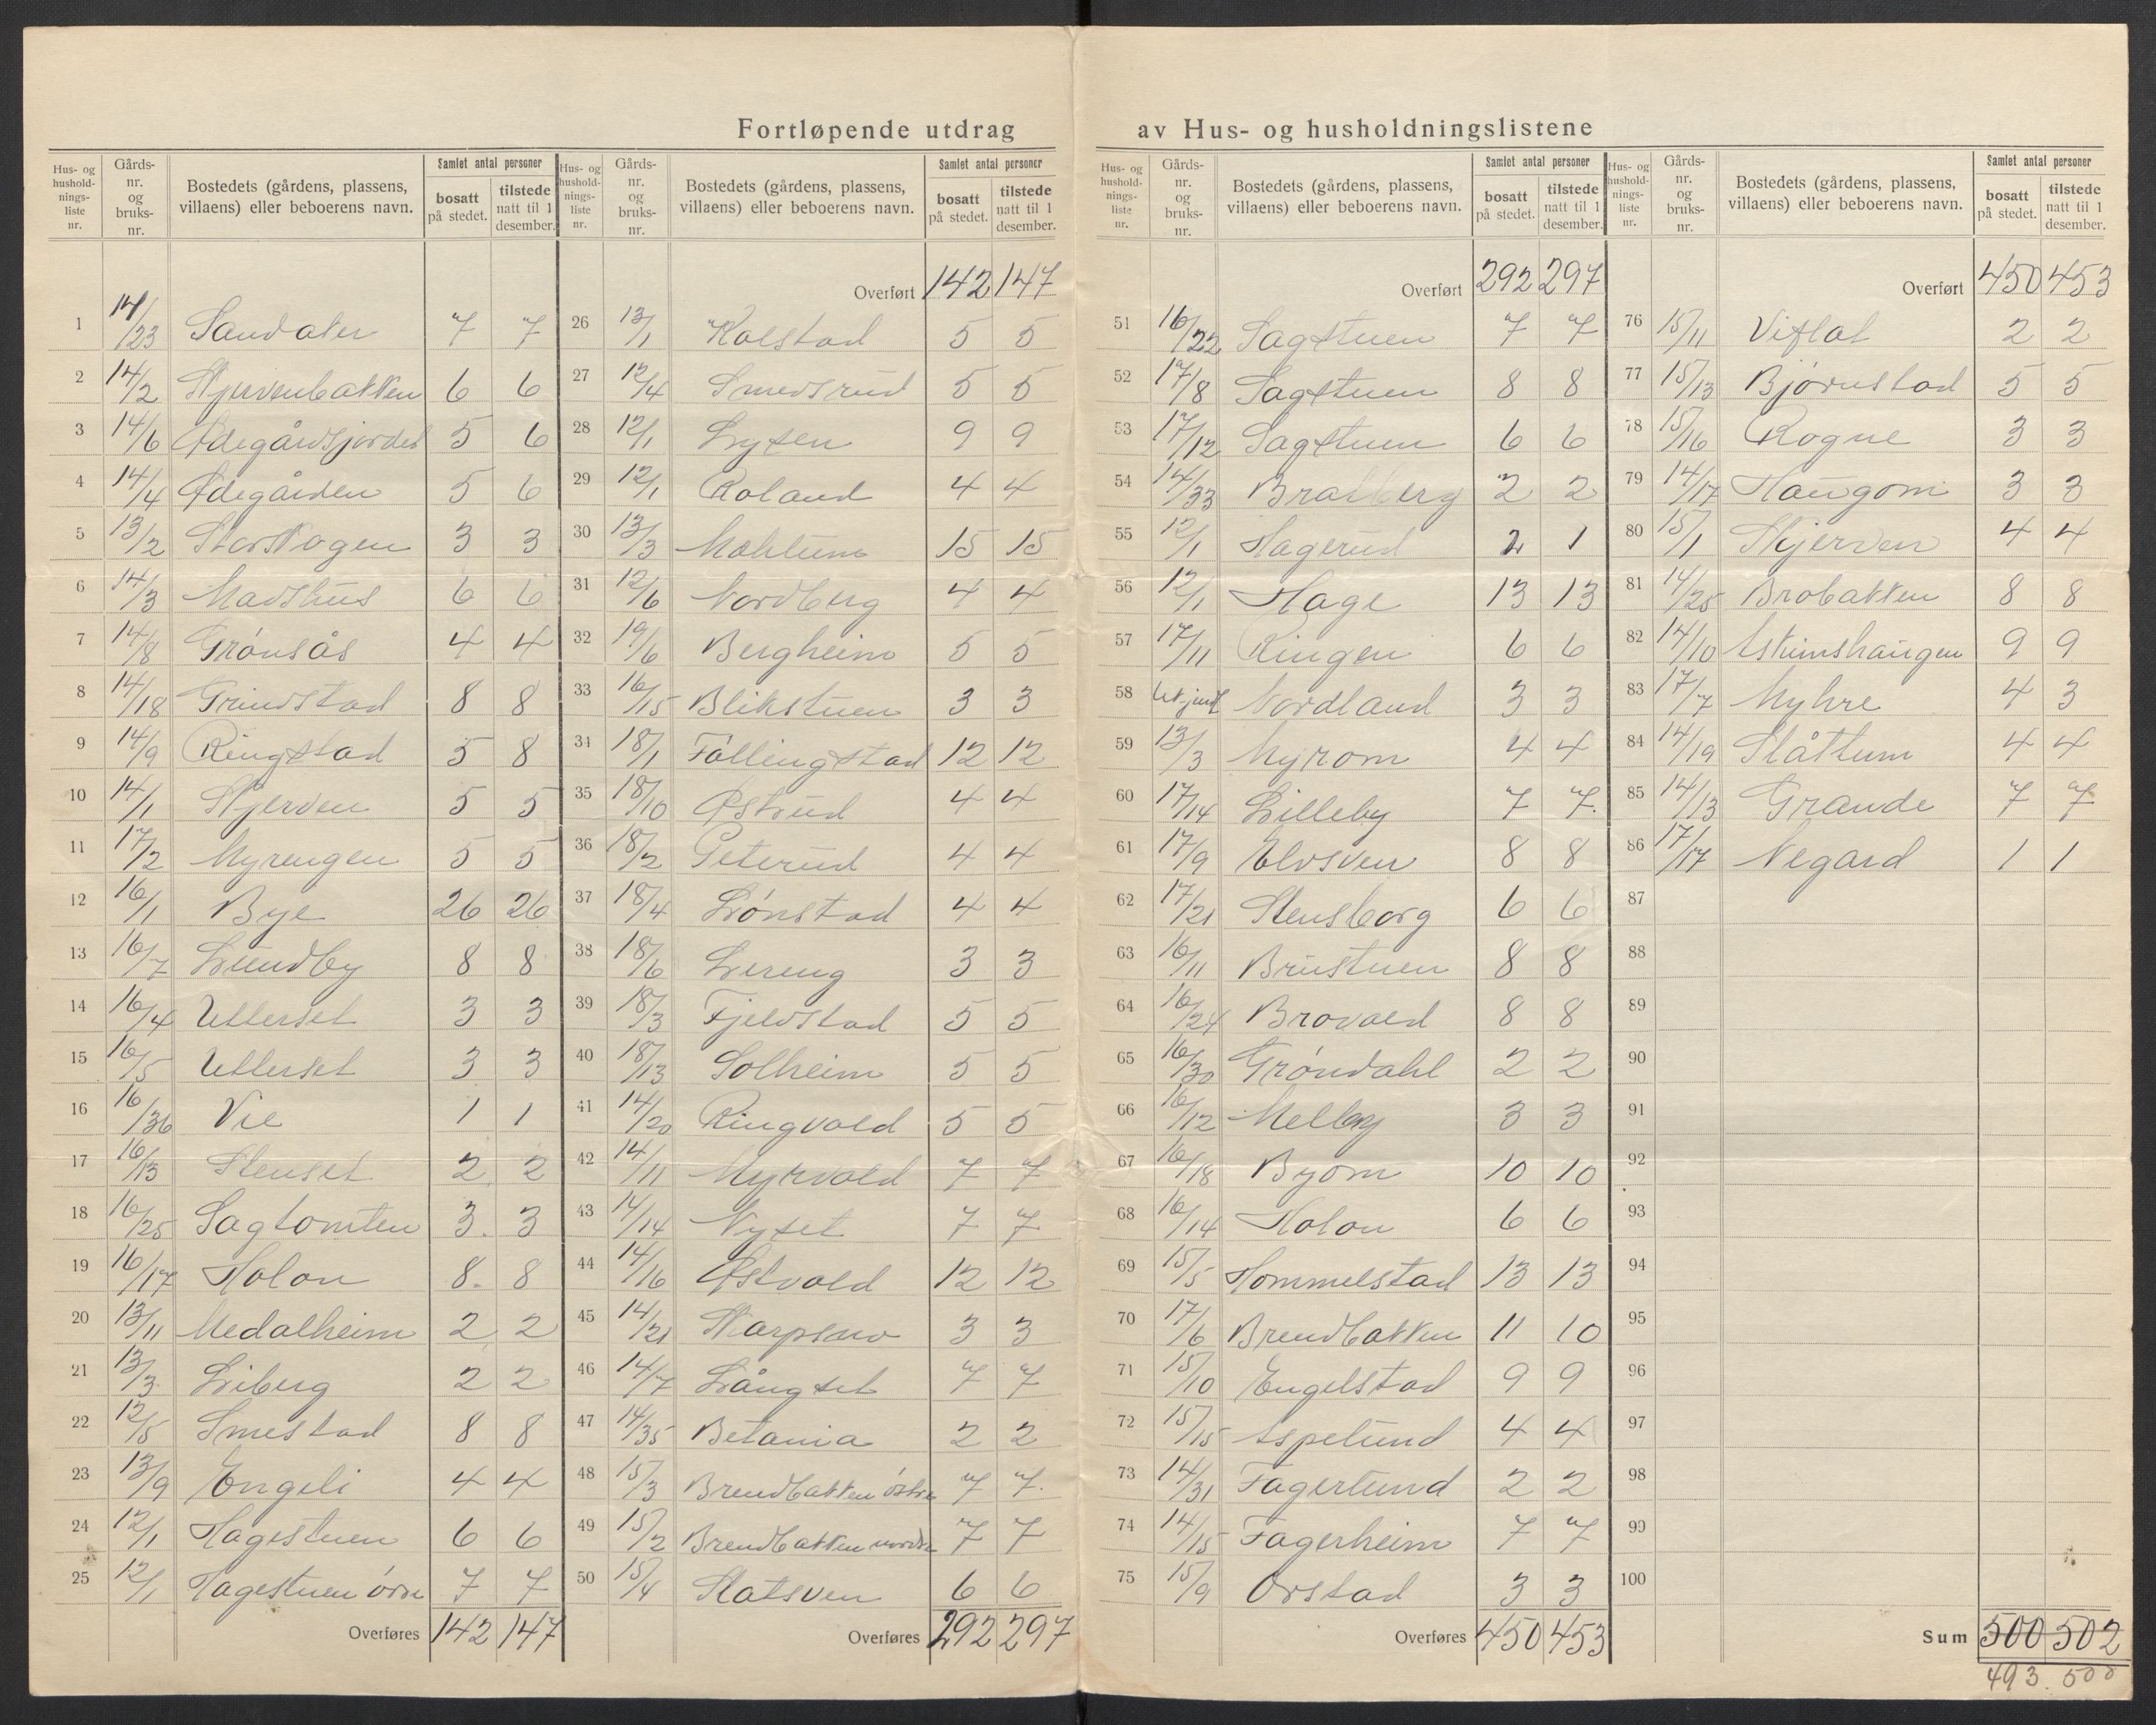 Fortløpende utdrag av Hus- og husholdningslistene
Hus- og hushold-nings-liste nr. | Gårds-nr. og bruks-nr. | Bostedets (gårdens, plassens, villaens) eller beboerens navn. | Samlet antal personer | bosatt på stedet. | tilstede natt til 1 desember.
1 14/23 Sandaker 7 7
2 14/2 Skjervenbakken 6 6
3 14/6 Ødegårdsjordet 5 6
4 14/4 Ødegården 5 6
5 13/2 Storskogen 3 3
6 14/3 Madshus 6 6
7 14/8 Grønsås 4 4
8 14/18 Grindstad 8 8
9 14/9 Ringstad 5 8
10 14/1 Skjerven 5 5
11 17/2 Myrengen 5 5
12 16/1 Bye 26 26
13 16/7 Lundby 8 8
14 16/4 Ullerset 3 3
15 16/5 Ullerset 3 3
16 16/36 Vie 1 1
17 16/13 Stenset 2 2
18 16/25 Sagtomten 3. 3
19 16/17 Holon 8. 8
20 13/11 Medalheim 2 2
21 13/3 Liberg 2 2
22 12/5 Smestad 8 8
23 13/9 Engeli 4 4
24 12/1 Hagestuen 6 6
25 12/1 Hagestuen övre 7 7
Overføres 142 147
Hus- og hushold-nings-liste nr. | Gårds-nr. og bruks-nr. | Bostedets (gårdens, plassens, villaens) eller beboerens navn. | Samlet antal personer | bosatt på stedet. | tilstede natt til 1 desember.
Overført 142 147
26 13/1 Kolstad 5 5
27 12/4 Smedsrud 5 5
28 12/1 Lysen 9 9
29 12/1 Roland 4 4
30 13/3 Mohlum 15 15
31 12/6 Nordberg 4 4
32 19/6 Bergheim 5 5
33 16/15 Blikstuen 3 3
34 18/1 Föllingstad 12 12
35 18/10 Østrud 4 4
36 18/2 Peterud 4 4
37 18/4 Lönstad 4 4
38 18/6 Lereng 3 3
39 18/3 Fjeldstad 5 5
40 18/13 Solheim 5 5
41 14/20 Ringvold 5 5
42 14/11 Myrvold 7 7
43 14/14 Nyset 7 7
44 14/16 Østvold 12 12
45 14/21 Skarpsno 3 3
46 14/7 Långset 7 7
47 14/35 Betania 2 2
48 15/3 Brendbakken östre 7 7.
49 15/2 Brendbakken nordre 7 7
50 15/4 Slatsven 6 6
Overføres 292 297
Hus- og hushold-nings-liste nr. | Gårds-nr. og bruks-nr. | Bostedets (gårdens, plassens, villaens) eller beboerens navn. | Samlet antal personer | bosatt på stedet. | tilstede natt til 1 desember.
Overført 292 297
51 16/22 Sagstuen 7 7
52 17/8 Sagstuen 8 8
53 17/12 Sagstuen 6 6
54 14/33 Bratberg 2 2
55 12/1 Hagerud 2 1
56 12/1 Hage 13 13
57 17/11 Ringen 6 6
58 Nordland 3 3
59 13/3 Myrom 4 4
60 17/14 Lilleby 7 7.
61 17/9 Elvsven 8 8
62 17/21 Stensborg 6 6
63 16/11 Brustuen 8 8
64 16/24 Brovold 8 8
65 16/30 Grøndahl 2 2
66 16/12 Melby 3 3
67 16/18 Byom 10 10
68 16/14 Holon 6 6
69 15/5 Hommelstad 13 13
70 17/6 Brendbakken 11 10
71 15/10 Engelstad 9 9
72 15/15 Aspelund 4 4
73 14/31 Fagerlund 2 2
74 14/15 Fagerheim 7 7
75 15/9 Orstad 3 3
Overføres 450 453
Hus- og hushold-nings-liste nr. | Gårds-nr. og bruks-nr. | Bostedets (gårdens, plassens, villaens) eller beboerens navn. | Samlet antal personer | bosatt på stedet. | tilstede natt til 1 desember.
Overført 450 453
76 15/11 Viflat 2 2
77 15/13 Bjørnstad 5 5
78 15/16 Rogne 3 3
79 14/17 Haugom 3 3
80 15/1 Skjerven 4 4
81 14/25 Brobakken 8 8
82 14/10 Askimshaugen 9 9
83 17/7 Myhre 4 3
84 14/19 Slåttum 4 4
85 14/13 Grande 7 7
86 17/17 Negard 1 1
87
88
89
90
91
92
93
94
95
96
97
98
99
100
Sum 500 502
493. 500